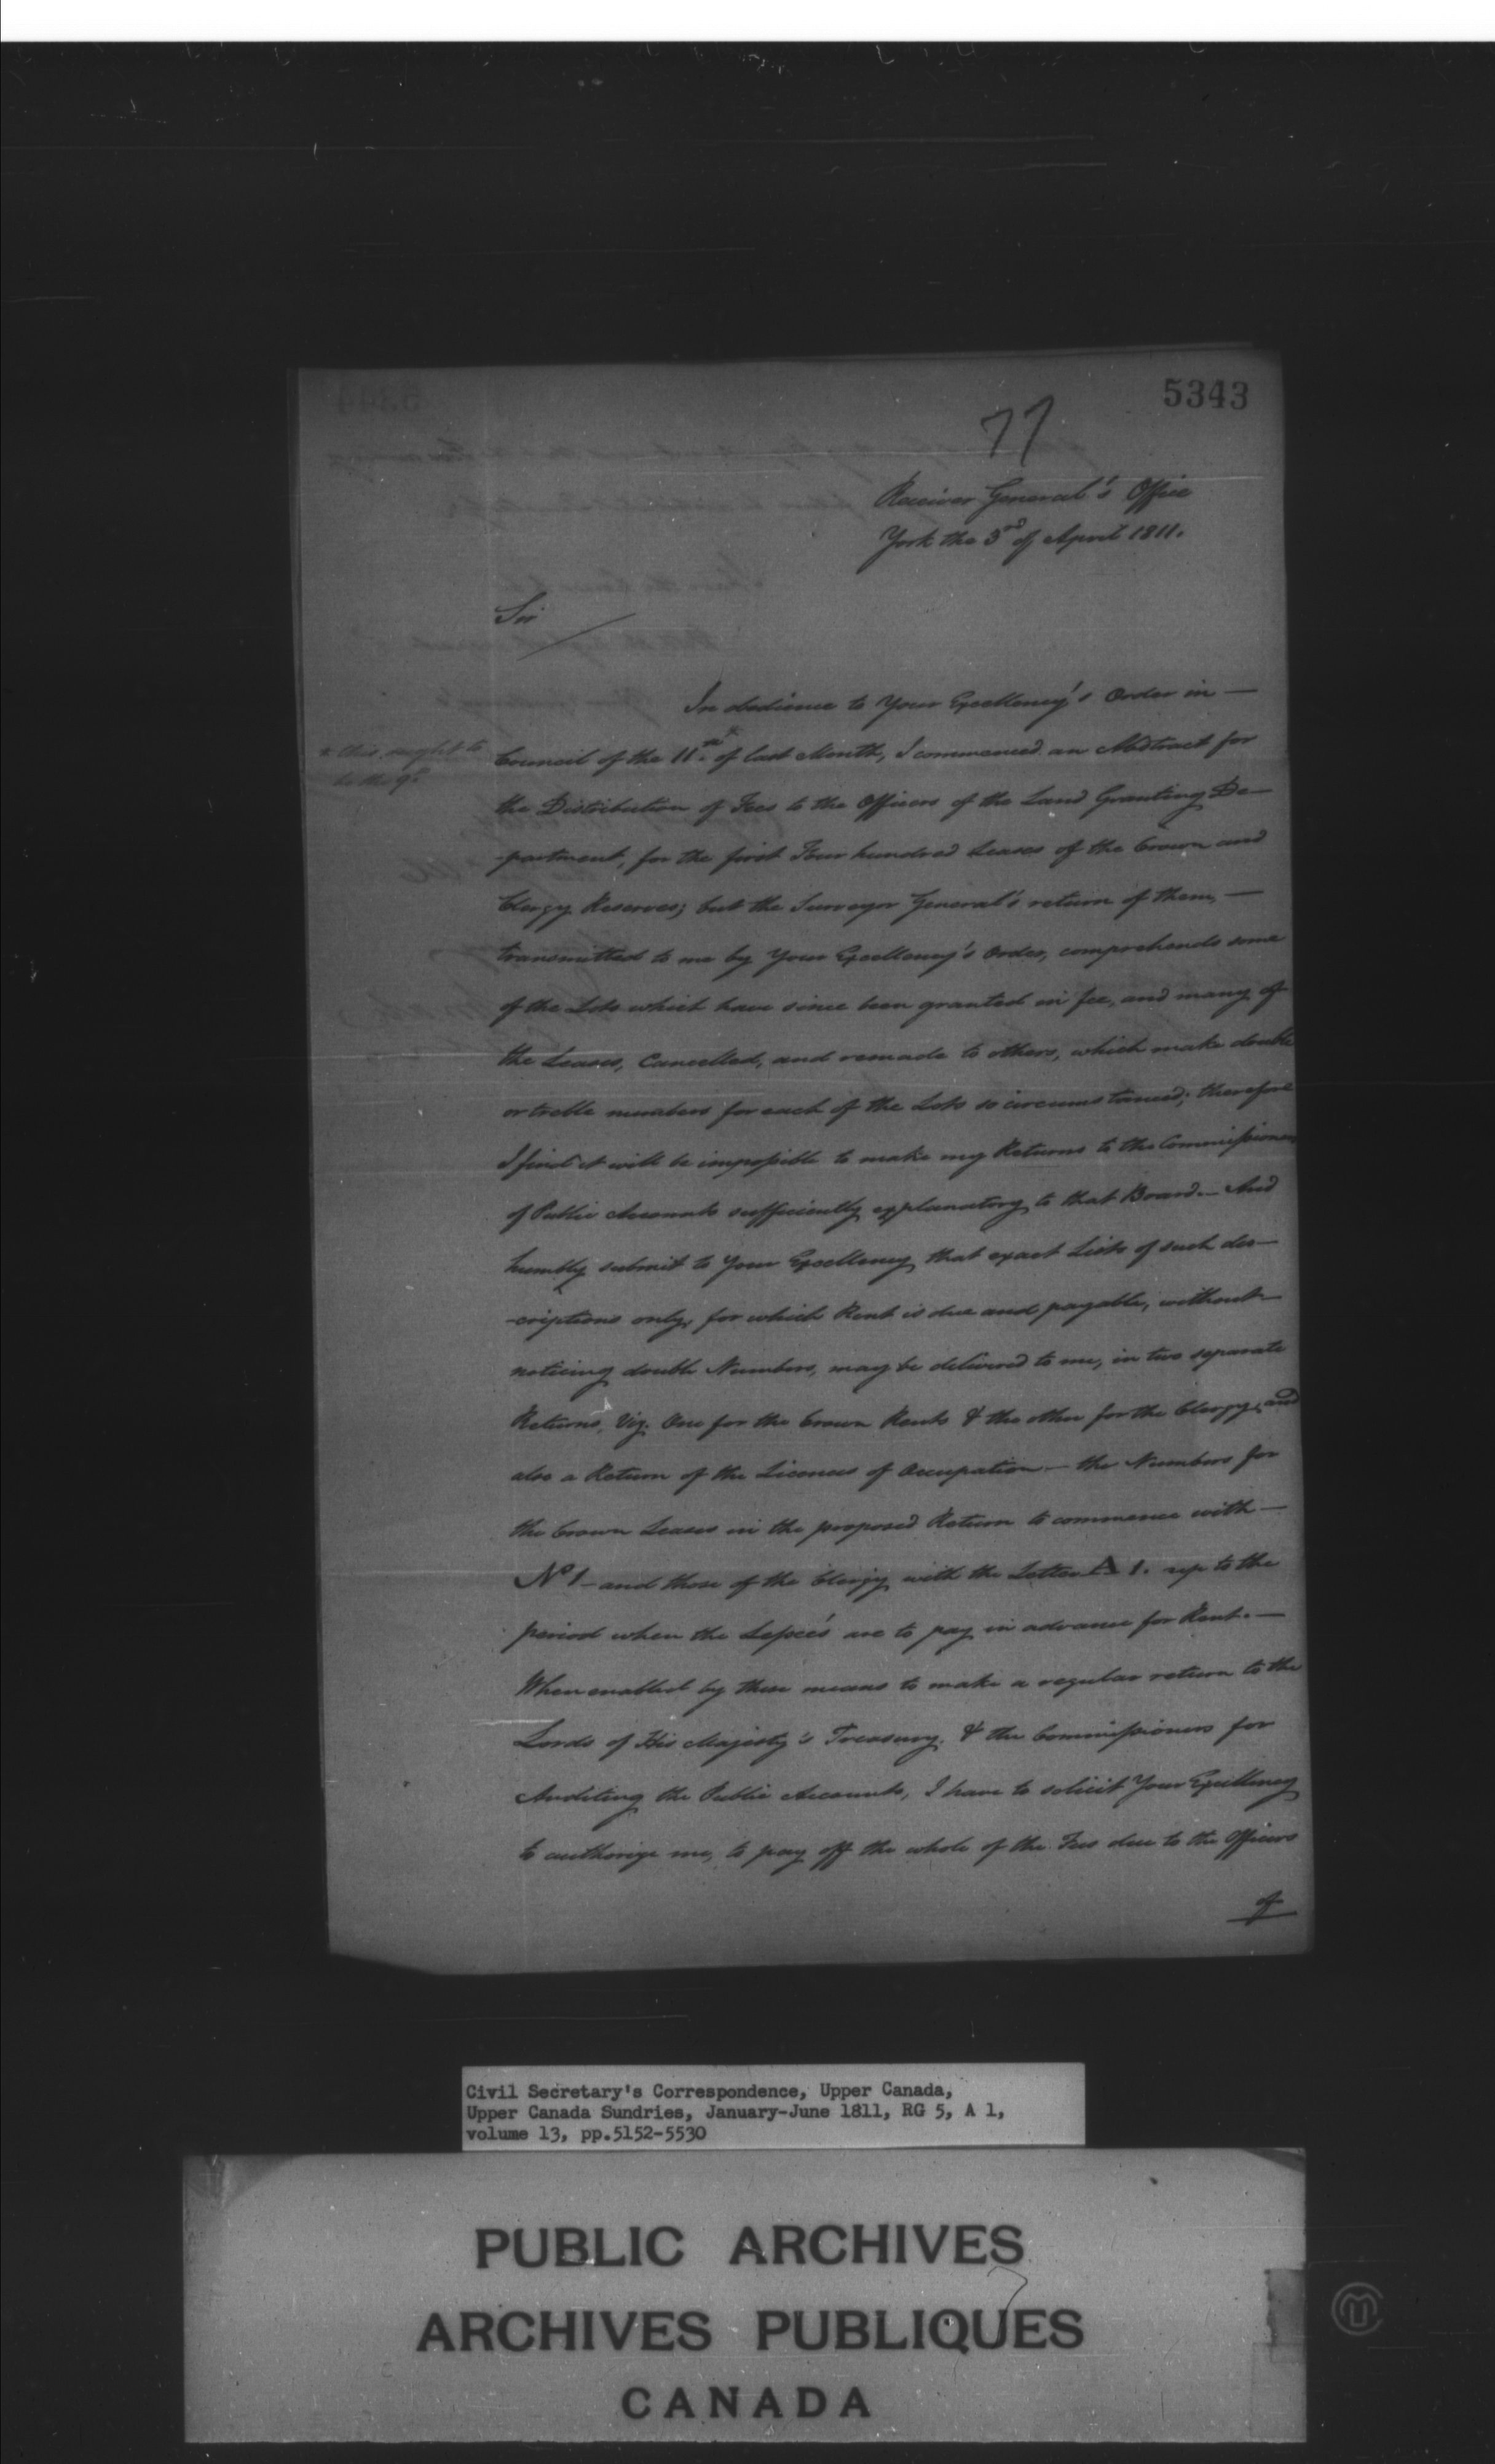 5343
77
Receiver General's Office
York the 3rd of April 1811.
Sir
In obedience to Your Excellency's Order in —
* this ought to
be the 9th
Council of the 11th * of last Month, I commenced an Abstract for
the Distribution of Fees to the Officers of the Land Granting De—
-partment, for the first Four hundred Leases of the Crown and
Clergy Reserves; but the Surveyor General's return of them, —
transmitted to me by Your Excellency's Order, comprehends some
of the Lots which have since been granted in fee, and many of
the Leases, Cancelled, and remade to others, which make double
or treble numbers for each of the Lots so circumstanced; therefore
I find it will be impossible to make my Returns to the Commissioners
of Public Accounts sufficiently explanatory to that Board. — And
humbly submit to Your Excellency that exact Lists of such des—
-criptions only, for which Rent is due and payable, without —
noticing double Numbers, may be delivered to me, in two separate
Returns, Viz. One for the Crown Rents & the other for the Clergy, and
also a Return of the Licences of Occupation — the Numbers for
the Crown Leases in the proposed Return to commence with —
No 1 — and those of the Clergy with the Letter A 1. up to the
period when the Lessee's are to pay in advance for Rent. —
When enabled by these means to make a regular return to the
Lords of His Majesty's Treasury, & the Commissioners for
Auditing the Public Accounts, I have to solicit Your Excellency
to authorize me, to pay off the whole of the Fees due to the Officers
of
Civil Secretary's Correspondence, Upper Canada,
Upper Canada Sundries, January-June 1811, RG 5, A 1,
volume 13, pp.5152-5530
PUBLIC ARCHIVES
ARCHIVES PUBLIQUES
CANADA